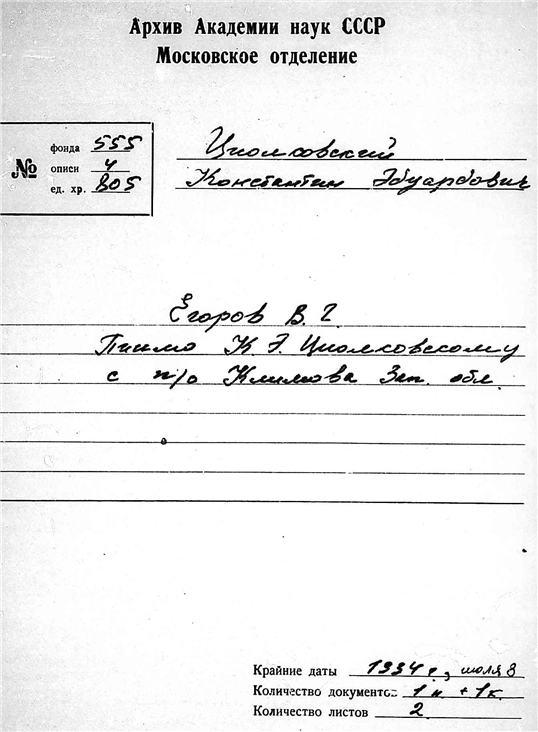 Архив Академии наук СССР
Московское отделение
№
фонда 555
описи 4
ед. хр. 805
Циолковский
Константин Эдуардович
Егоров В. Г.
Письмо К. Э. Циолковскому
с п/о Климова Зап. обл.
Крайние даты 1934 г., июля 8
Количество документов 1 п. + 1 к.
Количество листов 2